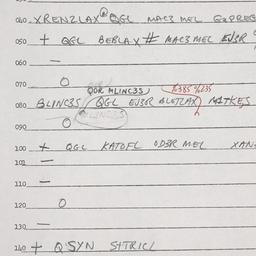 040 XRENZLAX QGL MAC3 MEL
050 + QGL BEBLAX # MAC3 MEL EJ3R
060 —
070 O
QOR HLINC3S
080 BLINC3S / QGL EJ3R BLETZAX) MITKES
090 O
100 + QGL KATOFL OD3R MEL XAN
101 —
110 —
120 O
130 —
140 + QSYN